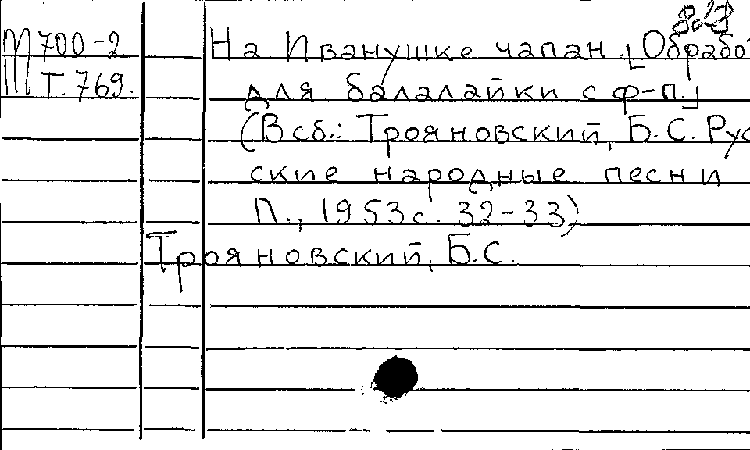 8.23
М 700-2 На Иванушке чапан. [Обрабо
Т. 769. для балалайки с ф-п.]
(В сб.: Трояновский, Б.С. Рус
ские народные песни
Л., 1953 с. 32-33)
Трояновский, Б.С.